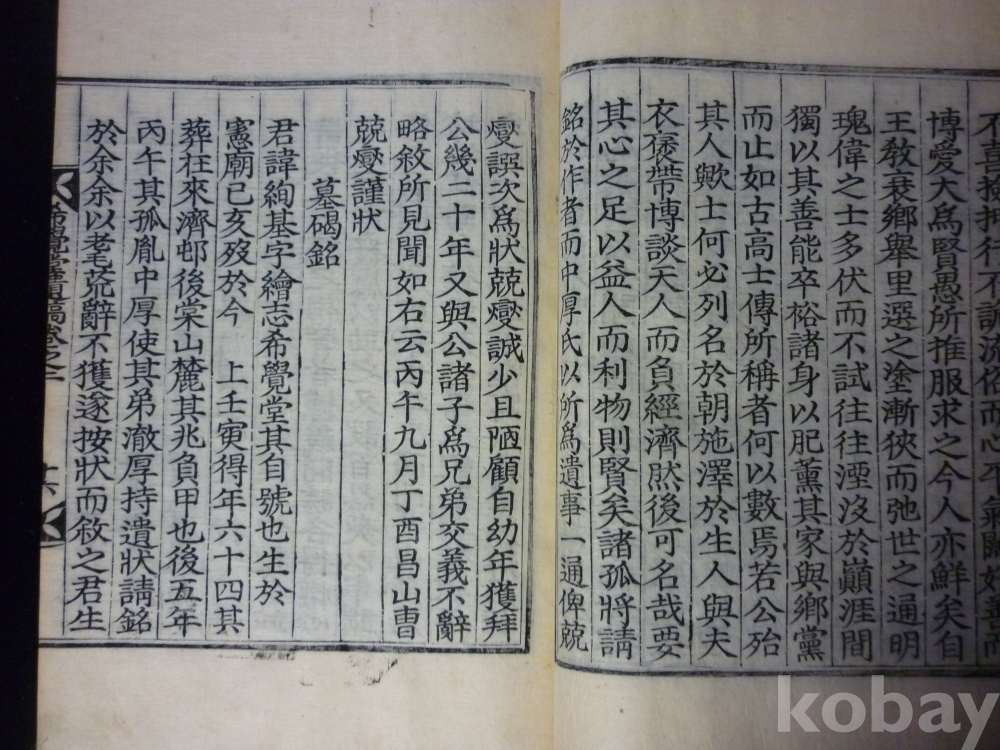 不喜
博愛大爲賢愚所推服求之今人亦鮮矣自
王敎衰鄕舉里選之塗漸狹而弛世之通明
瑰偉之士多伏而不試往往湮沒於巓涯間
獨以其善能卒裕諸身以肥薰其家與鄕黨
而止如古高士傳所稱者何以數焉若公殆
其人歟士何必列名於朝施澤於生人與夫
衣褒帶博談天人而負經濟然後可名哉要
其心之足以益人而利物則賢矣諸孤將請
銘於作者而中厚氏以所爲遺事一通俾兢
燮譔次爲狀兢燮誠少且陋顧自幼年獲拜
公幾二十年又與公諸子爲兄弟交義不辭
略敘所見聞如右云丙午九月丁酉昌山曺
兢燮謹狀
墓碣銘
君諱絢基字繪志希覺堂其自號也生於
憲廟己亥歿於今 上壬寅得年六十四其
葬在來濟邨後棠山麓其兆負甲也後五年
丙午其孤胤中厚使其弟澈厚持遺狀請銘
於余余以老荒辭不獲遂按狀而敘之君生
希覺堂遺稿卷之二
十六
kobay